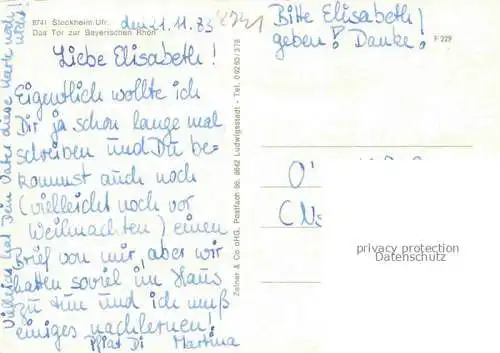 8741 Stockheim/Ufr.
Das Tor zur Bayerischen Rhön
den 21.11.83
Liebe Elisabeth!
Eigentlich wollte ich
Dir ja schon lange mal
schreiben und Du be-
kommst auch noch
(vielleicht noch vor
Weihnachten) einen
Brief von mir, aber wir
hatten soviel im Haus
zu tun und ich muß
einiges nachlernen!
Pfiat Di Martina
Vielleicht hat Dein Vater diese Karte noch
nicht!
Zollner & Co oHG, Postfach 98, 8642 Ludwigsstadt - Tel. 09263/378
Bitte Elisabeth
geben! Danke!
F 229
privacy protection
Datenschutz